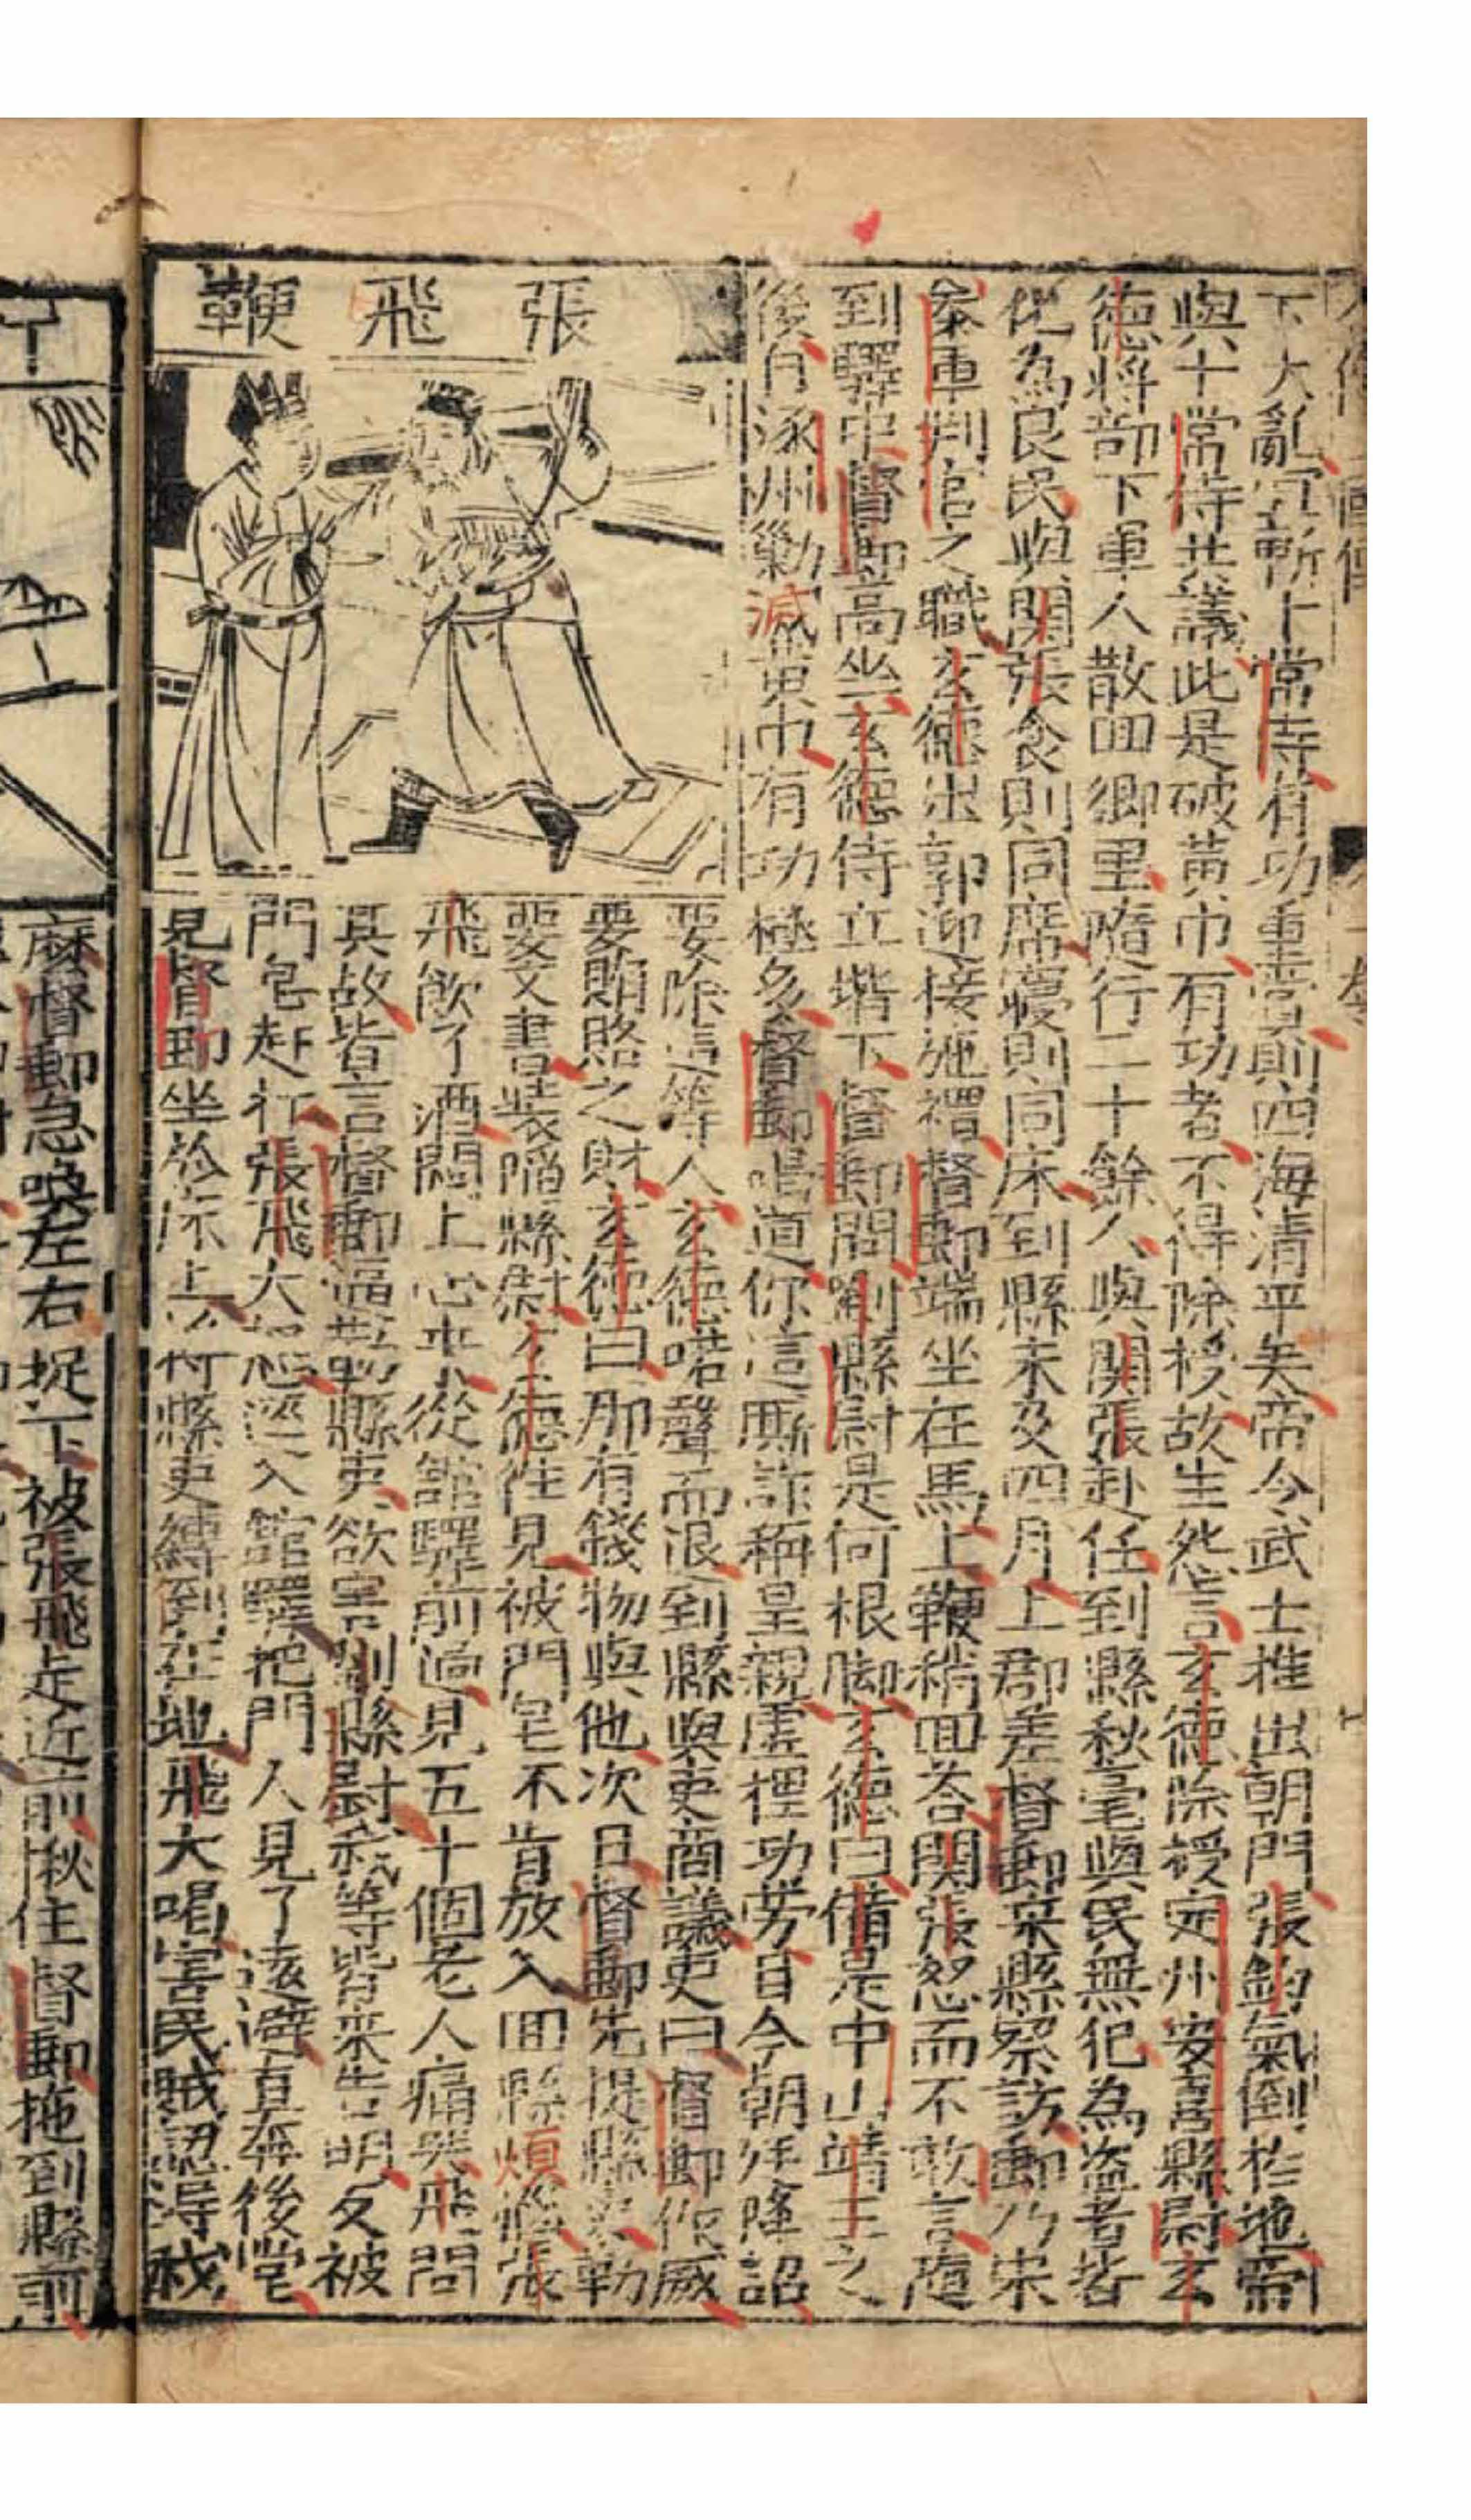 下大亂宜斬十常侍有功重賞則四海清平矣帝令武士推出朝門張鈞氣倒於地帝
與十常侍共議此是破黃巾有功者不得除授故生怨言玄德除授定州安喜縣尉玄
德將部下軍人散回鄉里隨行二十餘人與関張赴任到縣秋毫與民無犯為盜者皆
化為良民與関張食則同席寢則同床到縣未及四月上郡差督郵來縣察訪郵乃宋
泰軍判官之職玄德出郭迎接施禮督郵端坐在馬上鞭稍回荅関張怒而不敢言隨
到驛中督郵高坐玄德侍立堦下督郵問劉縣尉是何根脚玄德曰備是中山靖王之
後自涿州勦滅黃巾有功極多督郵喝道你這厮詐稱皇親虛捏功勞目今朝廷降詔
張飛鞭
要除這等人玄德喏聲而退到縣與吏商議吏曰督郵作威
要賄賂之財玄德曰那有錢物與他次日督郵先提縣吏勒
要文書裝陷縣尉玄德往見被門皂不肯放入回縣煩惱張
飛飲了酒悶上心來從館驛前過見五十個老人痛哭飛問
其故皆言督郵逼勒縣吏欲害劉縣尉我等皆來告明又被
門皂赶打張飛大怒逕入館驛把門人見了遠避直奔後堂
見督郵坐於床上將縣吏縛倒在地飛大喝害民賊認得我
麽督郵急喚左右捉下被張飛走近前揪住督郵拖到縣前